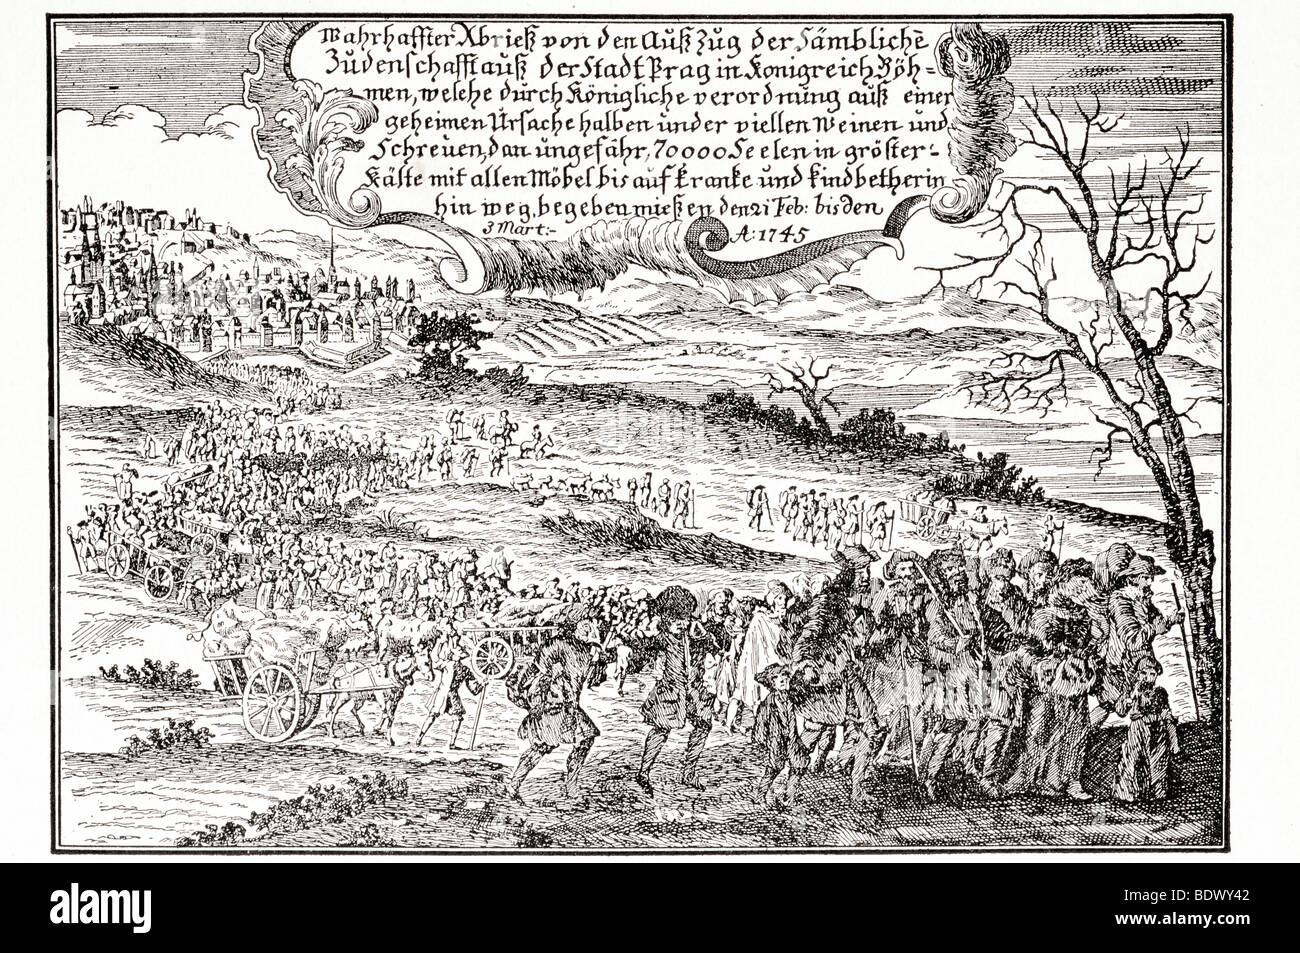 Wahrhaffter Abrieß von den Auß Zug der Sämblichē
Judenschafft auß der Stadt Prag in Königreich Böh-
men, welche durch Königliche verordnung auß einer
geheimen Ursache halben under viellen Weinen und
Schreuen, dan ungefähr, 70000 Seelen in gröster-
Kälte mit allen Möbel bis auf kranke und kindbetherin
hin weg, begeben mießen den 21 Feb: bis den
3 Mart:- A: 1745
alamy
Image ID: BDWY42
www.alamy.com